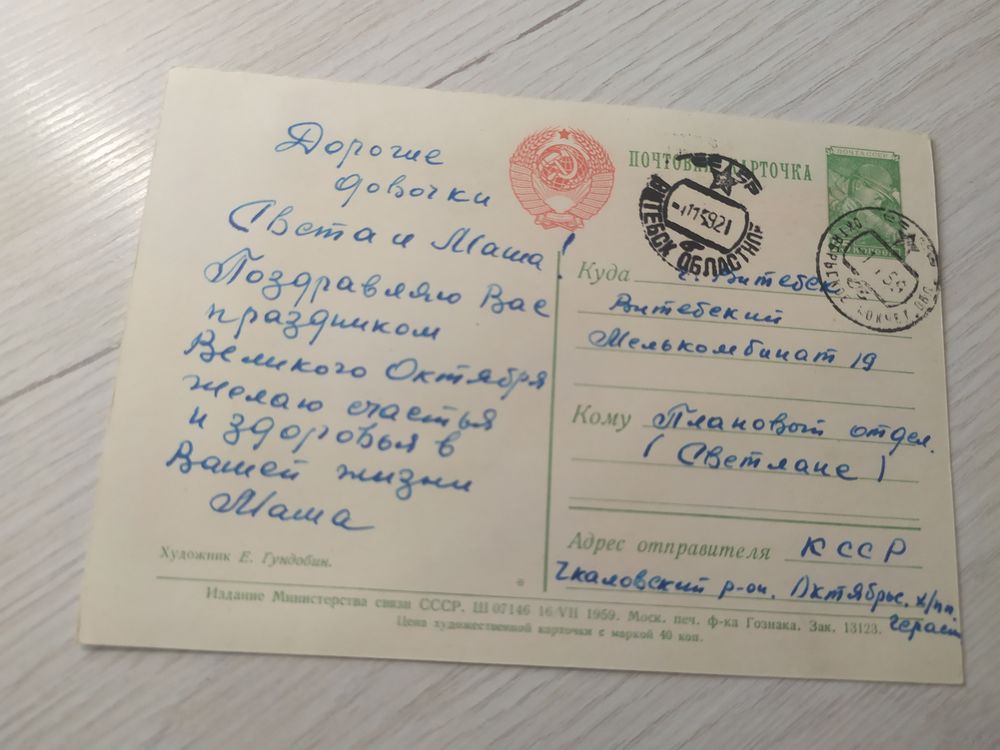 Дорогие
довочки
Света и Маша!
Поздравляю Вас
праздником
Великого Октября
желаю счастья
и здоровья в
Вашей жизни
Маша
Художник Е. Гундобин.
ПОЧТОВАЯ КАРТОЧКА
ПОЧТА СССР
ВИТЕБСК ОБЛАСТНОЕ
Куда г. Витебск
Витебский
Мелькомбинат 19
Кому Плановый отдел.
(Светлане)
Адрес отправителя КССР
Чкаловский р-он. Октябрьс. х/пп.
Издание Министерства связи СССР. Ш 07146 16/VII 1959. Моск. печ. ф-ка Гознака. Зак. 13123.
Цена художественной карточки с маркой 40 коп.